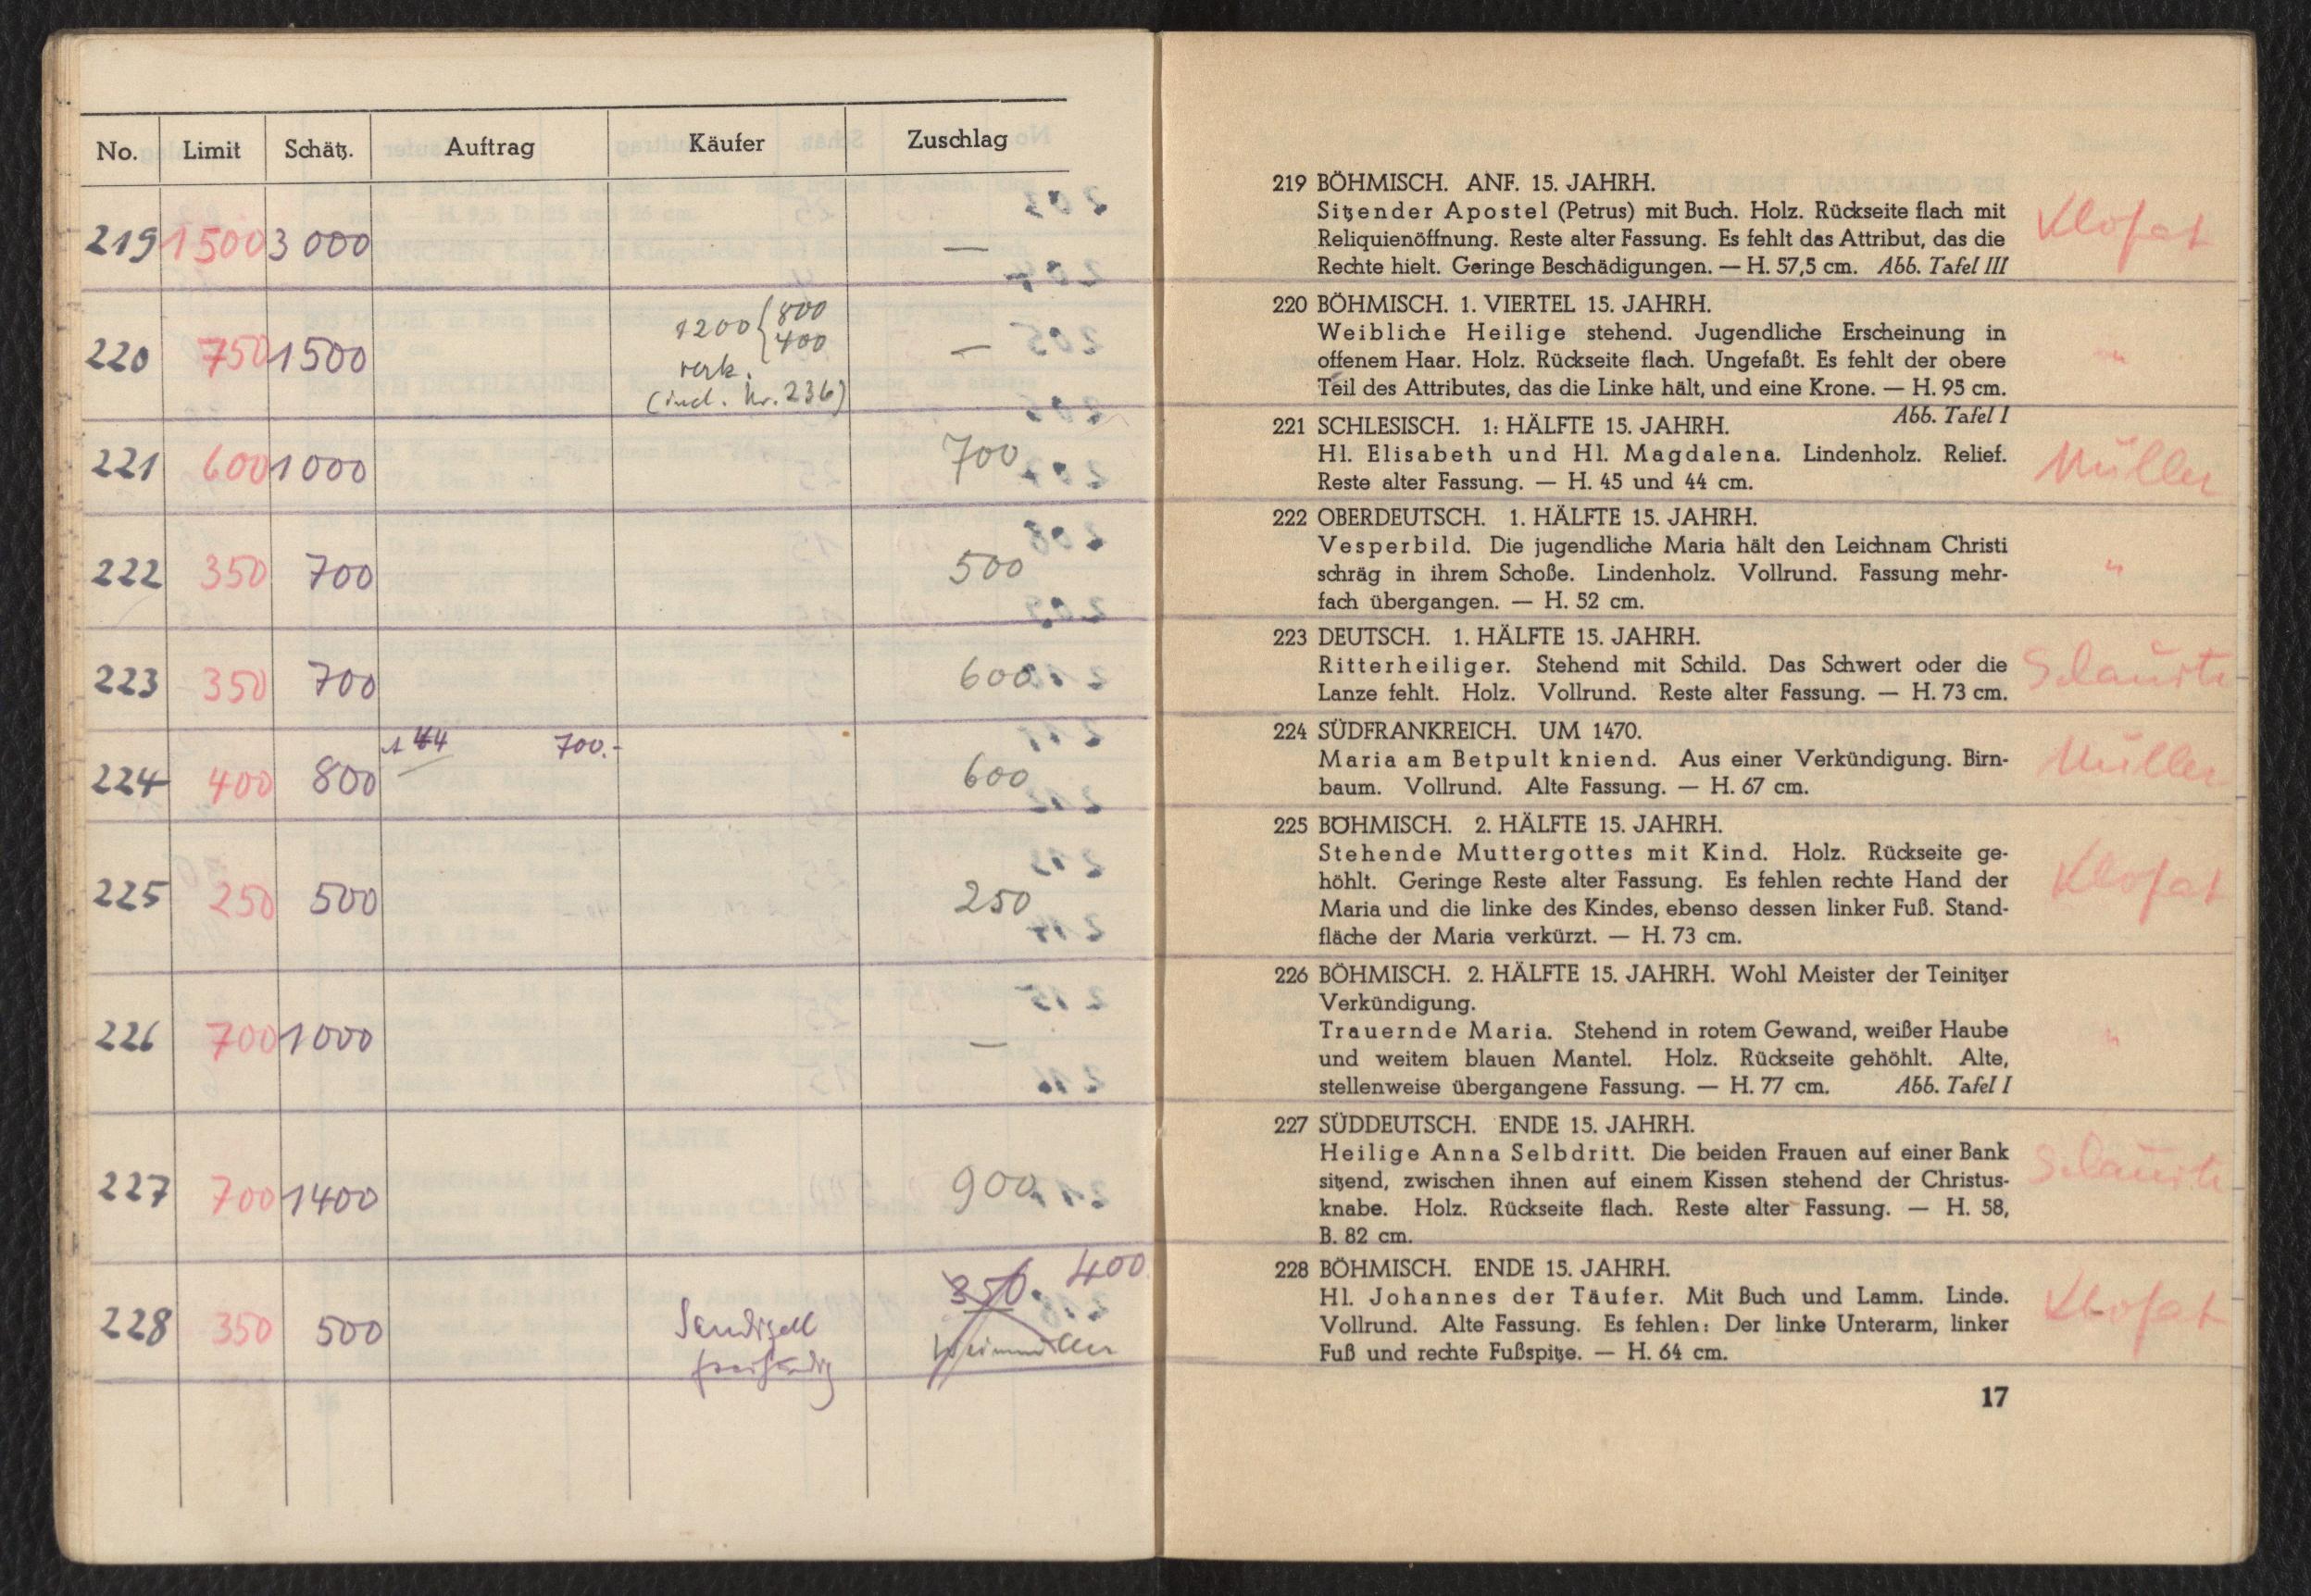 No. Limit Schätz. Auftrag Käufer Zuschlag
219 1500 3000 —
220 750 1500 1200 { 800 —
400
verk.
(incl. Nr. 236)
221 600 1000 700
222 350 700 500
223 350 700 600
224 400 800 144 700.- 600
225 250 500 250
226 700 1000 —
227 700 1400 900
228 350 500 Sandizell 350.- 400.
freihändig Weinmüller
219 BÖHMISCH. ANF. 15. JAHRH.
Sitzender Apostel (Petrus) mit Buch. Holz. Rückseite flach mit
Reliquienöffnung. Reste alter Fassung. Es fehlt das Attribut, das die
Rechte hielt. Geringe Beschädigungen. — H. 57,5 cm. Abb. Tafel III
Klofat
220 BÖHMISCH. 1. VIERTEL 15. JAHRH.
Weibliche Heilige stehend. Jugendliche Erscheinung in
offenem Haar. Holz. Rückseite flach. Ungefaßt. Es fehlt der obere
Teil des Attributes, das die Linke hält, und eine Krone. — H. 95 cm.
Abb. Tafel I
"
221 SCHLESISCH. 1: HÄLFTE 15. JAHRH.
Hl. Elisabeth und Hl. Magdalena. Lindenholz. Relief.
Reste alter Fassung. — H. 45 und 44 cm.
Müller
222 OBERDEUTSCH. 1. HÄLFTE 15. JAHRH.
Vesperbild. Die jugendliche Maria hält den Leichnam Christi
schräg in ihrem Schoße. Lindenholz. Vollrund. Fassung mehr-
fach übergangen. — H. 52 cm.
"
223 DEUTSCH. 1. HÄLFTE 15. JAHRH.
Ritterheiliger. Stehend mit Schild. Das Schwert oder die
Lanze fehlt. Holz. Vollrund. Reste alter Fassung. — H. 73 cm.
224 SÜDFRANKREICH. UM 1470.
Maria am Betpult kniend. Aus einer Verkündigung. Birn-
baum. Vollrund. Alte Fassung. — H. 67 cm.
Müller
225 BÖHMISCH. 2. HÄLFTE 15. JAHRH.
Stehende Muttergottes mit Kind. Holz. Rückseite ge-
höhlt. Geringe Reste alter Fassung. Es fehlen rechte Hand der
Maria und die linke des Kindes, ebenso dessen linker Fuß. Stand-
fläche der Maria verkürzt. — H. 73 cm.
Klofat
226 BÖHMISCH. 2. HÄLFTE 15. JAHRH. Wohl Meister der Teinitzer
Verkündigung.
Trauernde Maria. Stehend in rotem Gewand, weißer Haube
und weitem blauen Mantel. Holz. Rückseite gehöhlt. Alte,
stellenweise übergangene Fassung. — H. 77 cm. Abb. Tafel I
"
227 SÜDDEUTSCH. ENDE 15. JAHRH.
Heilige Anna Selbdritt. Die beiden Frauen auf einer Bank
sitzend, zwischen ihnen auf einem Kissen stehend der Christus-
knabe. Holz. Rückseite flach. Reste alter Fassung. — H. 58,
B. 82 cm.
228 BÖHMISCH. ENDE 15. JAHRH.
Hl. Johannes der Täufer. Mit Buch und Lamm. Linde.
Vollrund. Alte Fassung. Es fehlen: Der linke Unterarm, linker
Fuß und rechte Fußspitze. — H. 64 cm.
Klofat
17